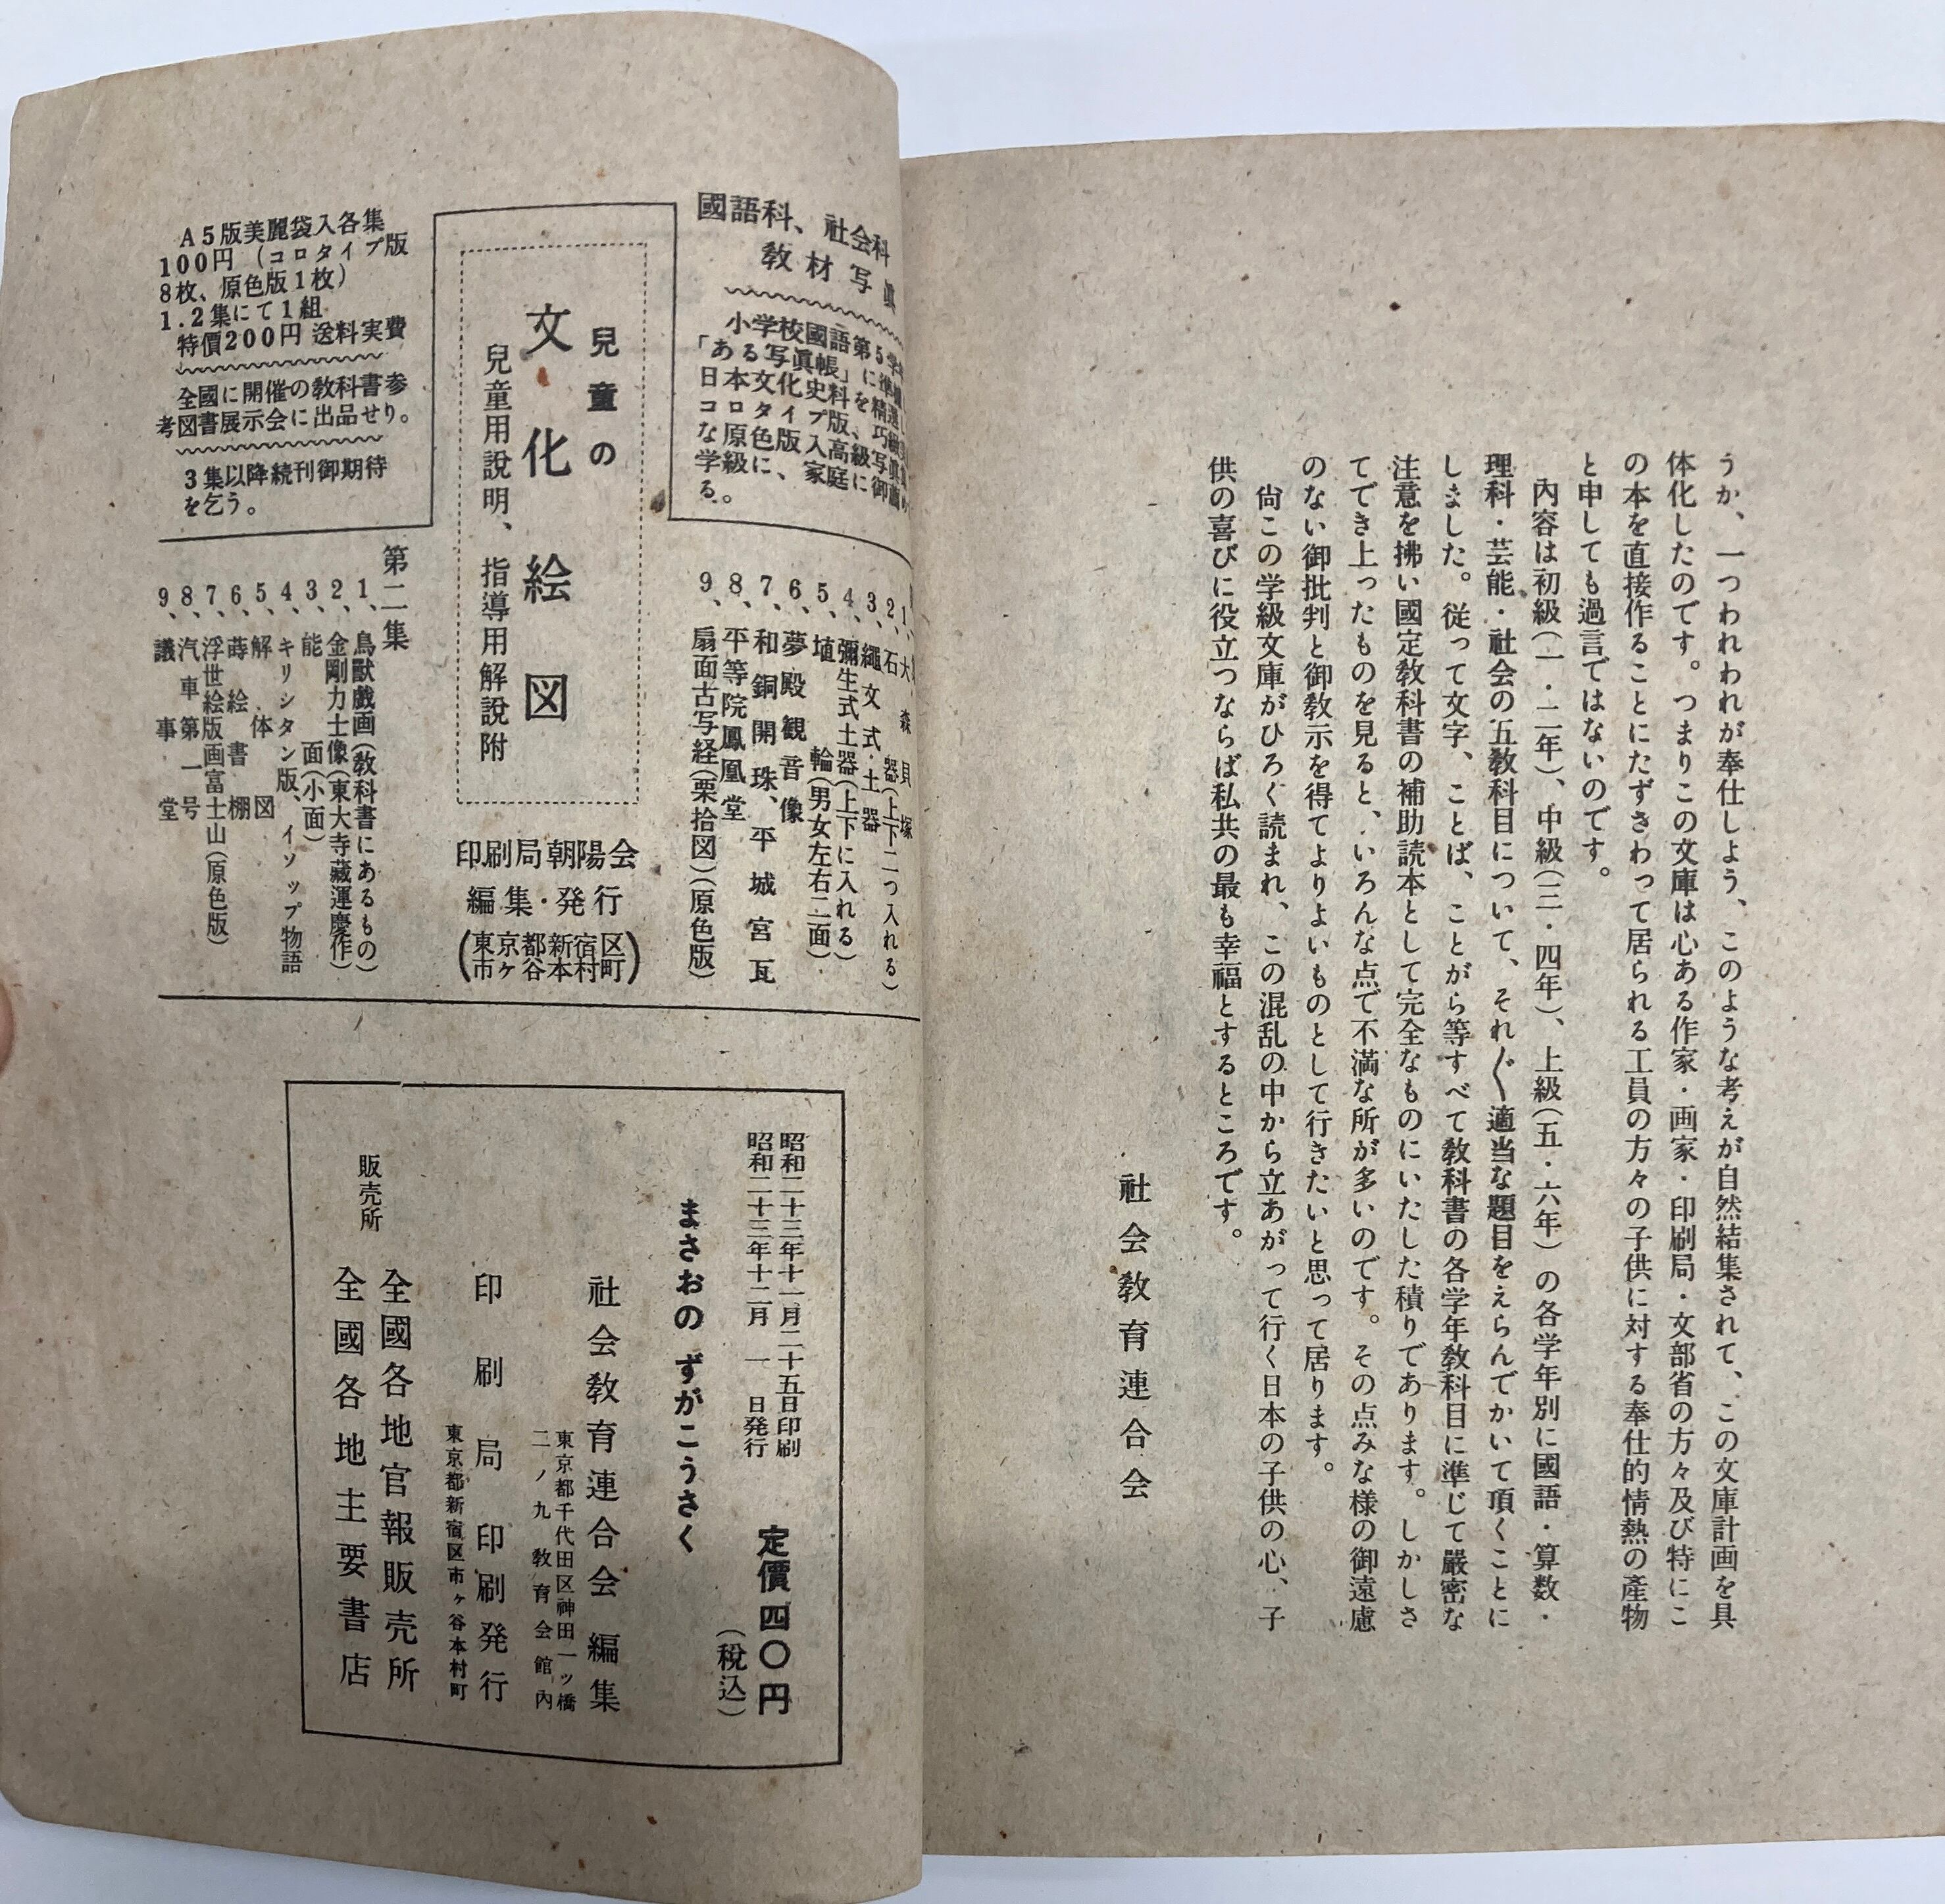 うか、一つわれわれが奉仕しよう、このような考えが自然結集されて、この文庫計画を具
体化したのです。つまりこの文庫は心ある作家・画家・印刷局・文部省の方々及び特にこ
の本を直接作ることにたずさわって居られる工員の方々の子供に対する奉仕的情熱の產物
と申しても過言ではないのです。
内容は初級(一・二年)、中級(三・四年)、上級(五・六年)の各学年別に國語・算数・
理科・芸能・社会の五教科目について、それ〴〵適当な題目をえらんでかいて頂くことに
しました。従って文字、ことば、ことがら等すべて教科書の各学年教科目に準じて嚴密な
注意を拂い國定教科書の補助読本として完全なものにいたした積りであります。しかしさ
てでき上ったものを見ると、いろんな点で不満な所が多いのです。その点みな様の御遠慮
のない御批判と御教示を得てよりよいものとして行きたいと思って居ります。
尙この学級文庫がひろく読まれ、この混乱の中から立あがって行く日本の子供の心、子
供の喜びに役立つならば私共の最も幸福とするところです。
社会教育連合会
國語科、社会科
教材写眞
小学校國語第5学
「ある写眞帳」に準
日本文化史料を精選
コロタイプ版、
な原色版、
学級に、家庭に御
る。
兒童の
文化絵図
兒童用説明、指導用解説附
印刷局朝陽会
編集・発行
(東京都新宿区
市ヶ谷本村町)
A5版美麗袋入各集
100円(コロタイプ版
8枚、原色版1枚)
1.2集にて1組
特價200円 送料実費
全國に開催の教科書参
考図書展示会に出品せり。
3集以降続刊御期待
を乞う。
1、大森貝塚
2、石器(上下二つ入れる)
3、繩文式土器
4、彌生式土器(上下に入れる)
5、埴輪(男女左右二面)
6、夢殿観音像
7、和銅開珠、平城宮瓦
8、平等院鳳凰堂
9、扇面古写経(栗拾図)(原色版)
第二集
1、鳥獸戯画(教科書にあるもの)
2、金剛力士像(東大寺藏運慶作)
3、能面(小面)
4、キリシタン版、イソップ物語
5、解体図
6、蒔絵書棚
7、浮世絵版画富士山(原色版)
8、汽車第一号
9、議事堂
昭和二十三年十一月二十五日印刷
昭和二十三年十二月一日発行
定價四〇円
(税込)
まさおのずがこうさく
社会教育連合会編集
東京都千代田区神田一ッ橋
二ノ九 教育会館內
印刷局印刷発行
東京都新宿区市ヶ谷本村町
全國各地官報販売所
販売所
全國各地主要書店